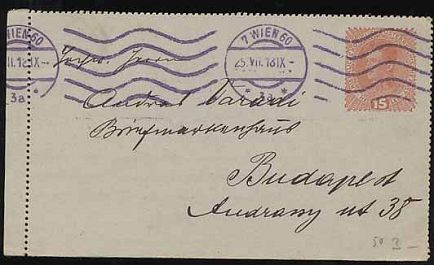 7 WIEN 60
II.18IX-
3a *
7 WIEN 60
25.VII.18IX-
* 3a *
15
Herrn
Andras
Briefmarkenhaus
Budapest
Andrassy ut 38
50